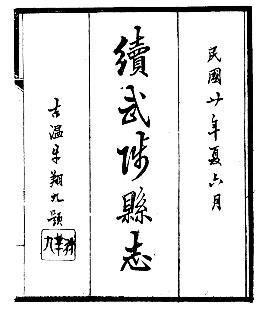 民國廿年夏六月
續武陟縣志
古溫朱翔九題